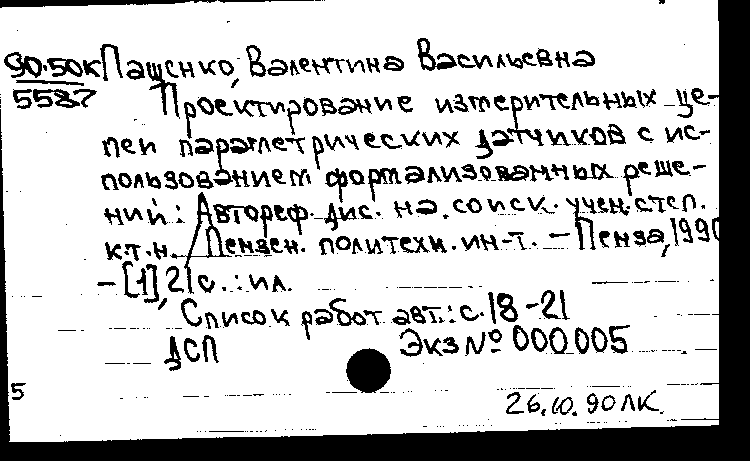 90.50К Пащенко, Валентина Васильевна
5587 Проектирование измерительных це-
пей параметрических датчиков с ис-
пользованием формализованных реше-
ний: Автореф. дис. на. соиск. учен. степ.
к.т.н. / Пензен. политехн. ин-т. – Пенза, 1990
– [1], 21 с. : ил.
Список работ авт.: с. 18-21
ДСП Экз № 000005
5
26.10.90 ЛК.